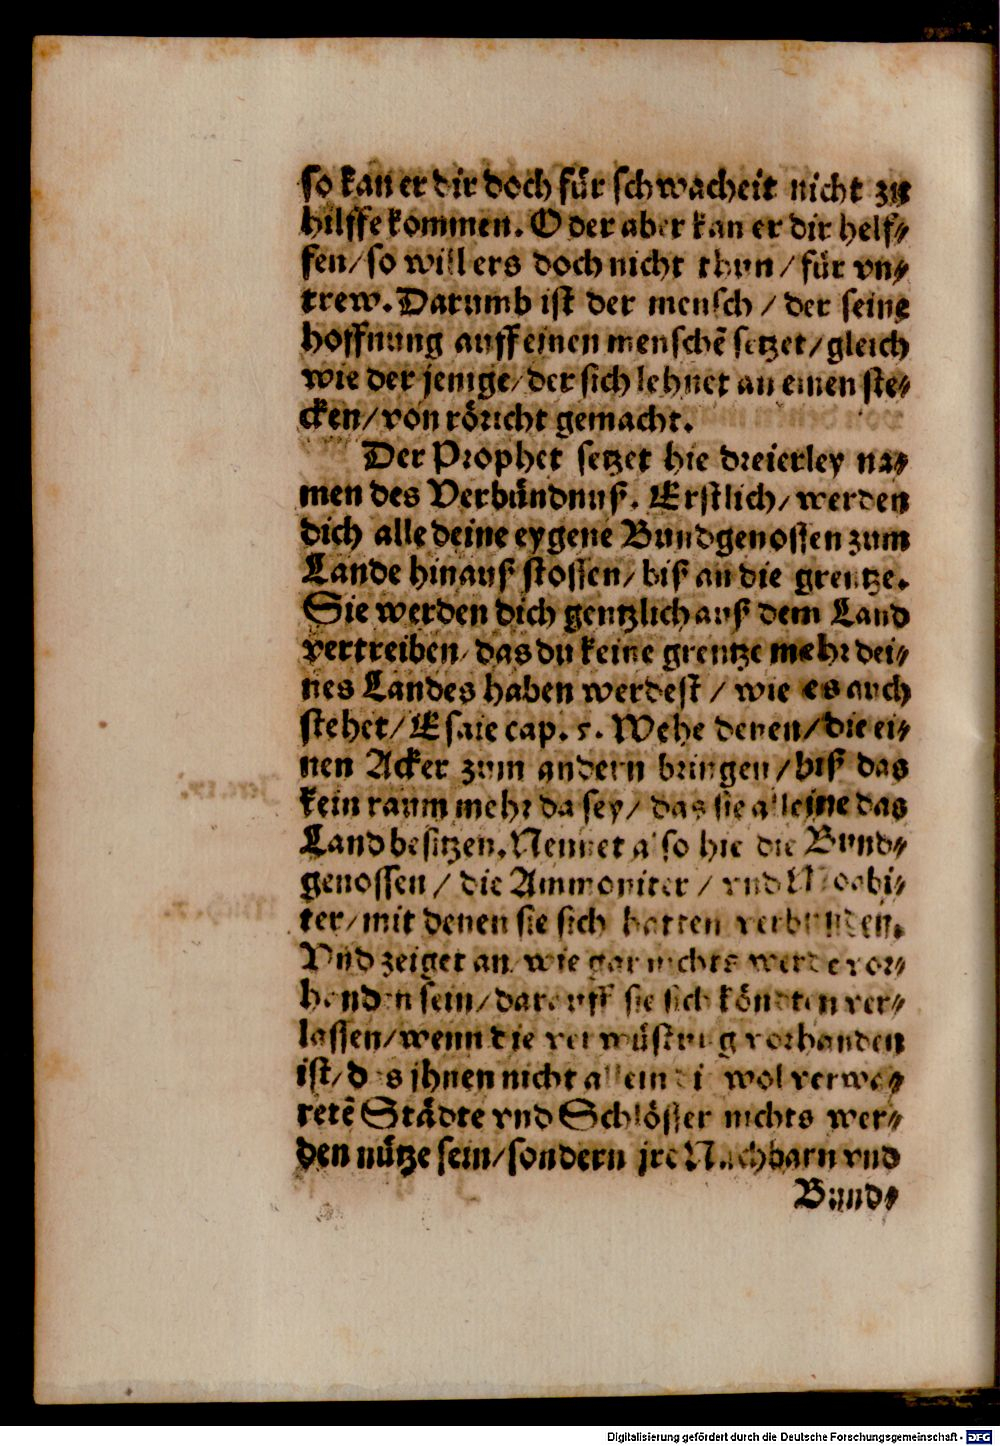 so kan er dir doch für schwacheit nicht zu
hilffe kommen. Oder aber kan er dir helf⸗
fen/ so will ers doch nicht thun/ für vn⸗
trew. Darumb ist der mensch/ der seine
hoffnung auff einen menschẽ setzet/ gleich
wie der jenige/ der sich lehnet an einen ste⸗
cken/ von röricht gemacht.
Der Prophet setzet hie dreierley na⸗
men des Verbündnuß. Erstlich/ werden
dich alle deine eygene Bundgenossen zum
Lande hinauß stossen/ biß an die grentze.
Sie werden dich gentzlich auß dem Land
vertreiben/ das du keine grentze mehr dei⸗
nes Landes haben werdest/ wie es auch
stehet/ Esaie cap. 5. Wehe denen/ die ei⸗
nen Acker zum andern bringen/ biß das
kein raum mehr da sey/ das sie alleine das
Land besitzen. Nennet also hie die Bund⸗
genossen/ die Ammoniter/ vnd Moabi⸗
ter/ mit denen sie sich hatten verbunden.
Vnd zeiget an/ wie gar nichts werde vor⸗
handen sein/ darauff sie sich köndten ver⸗
lassen/ wenn die verwüstung vorhanden
ist/ das jhnen nicht allein di wol verwa⸗
retẽ Städte vnd Schlösser nichts wer⸗
den nütze sein/ sondern jre Nachbarn vnd
Bund⸗
Digitalisierung gefördert durch die Deutsche Forschungsgemeinschaft - DFG